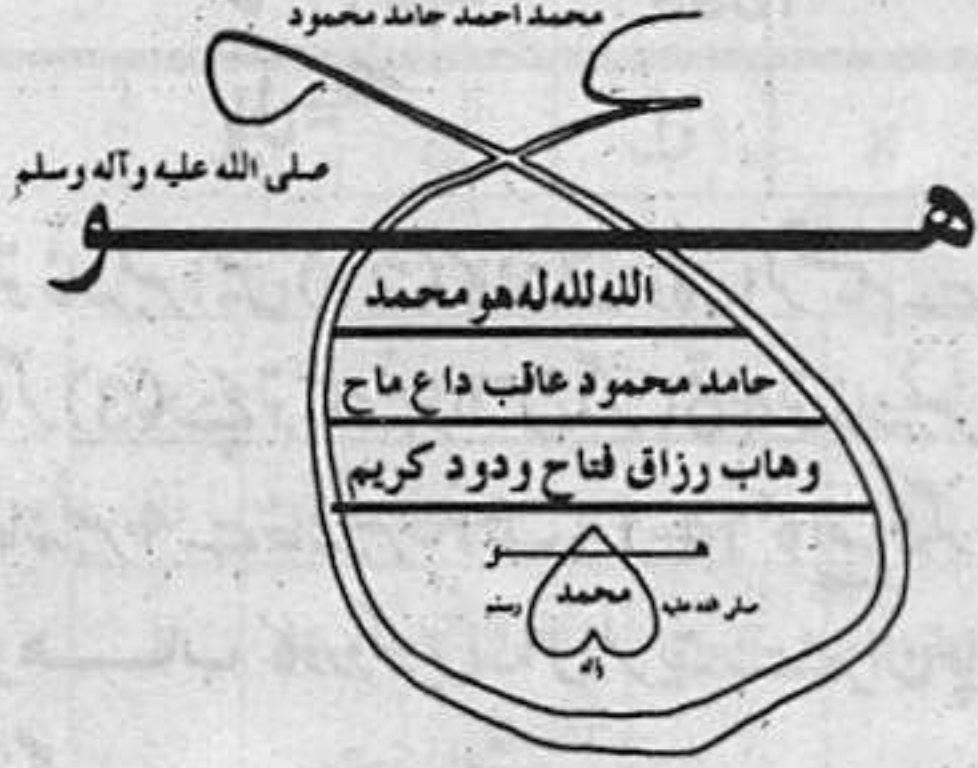 محمد احمد حامد محمود
صلى الله عليه وآله وسلم
هو
الله لله له هو محمد
حامد محمود عاقب داع ماح
وهاب رزاق فتاح ودود كريم
هو
محمد
صلى الله عليه
وسلم
وآله